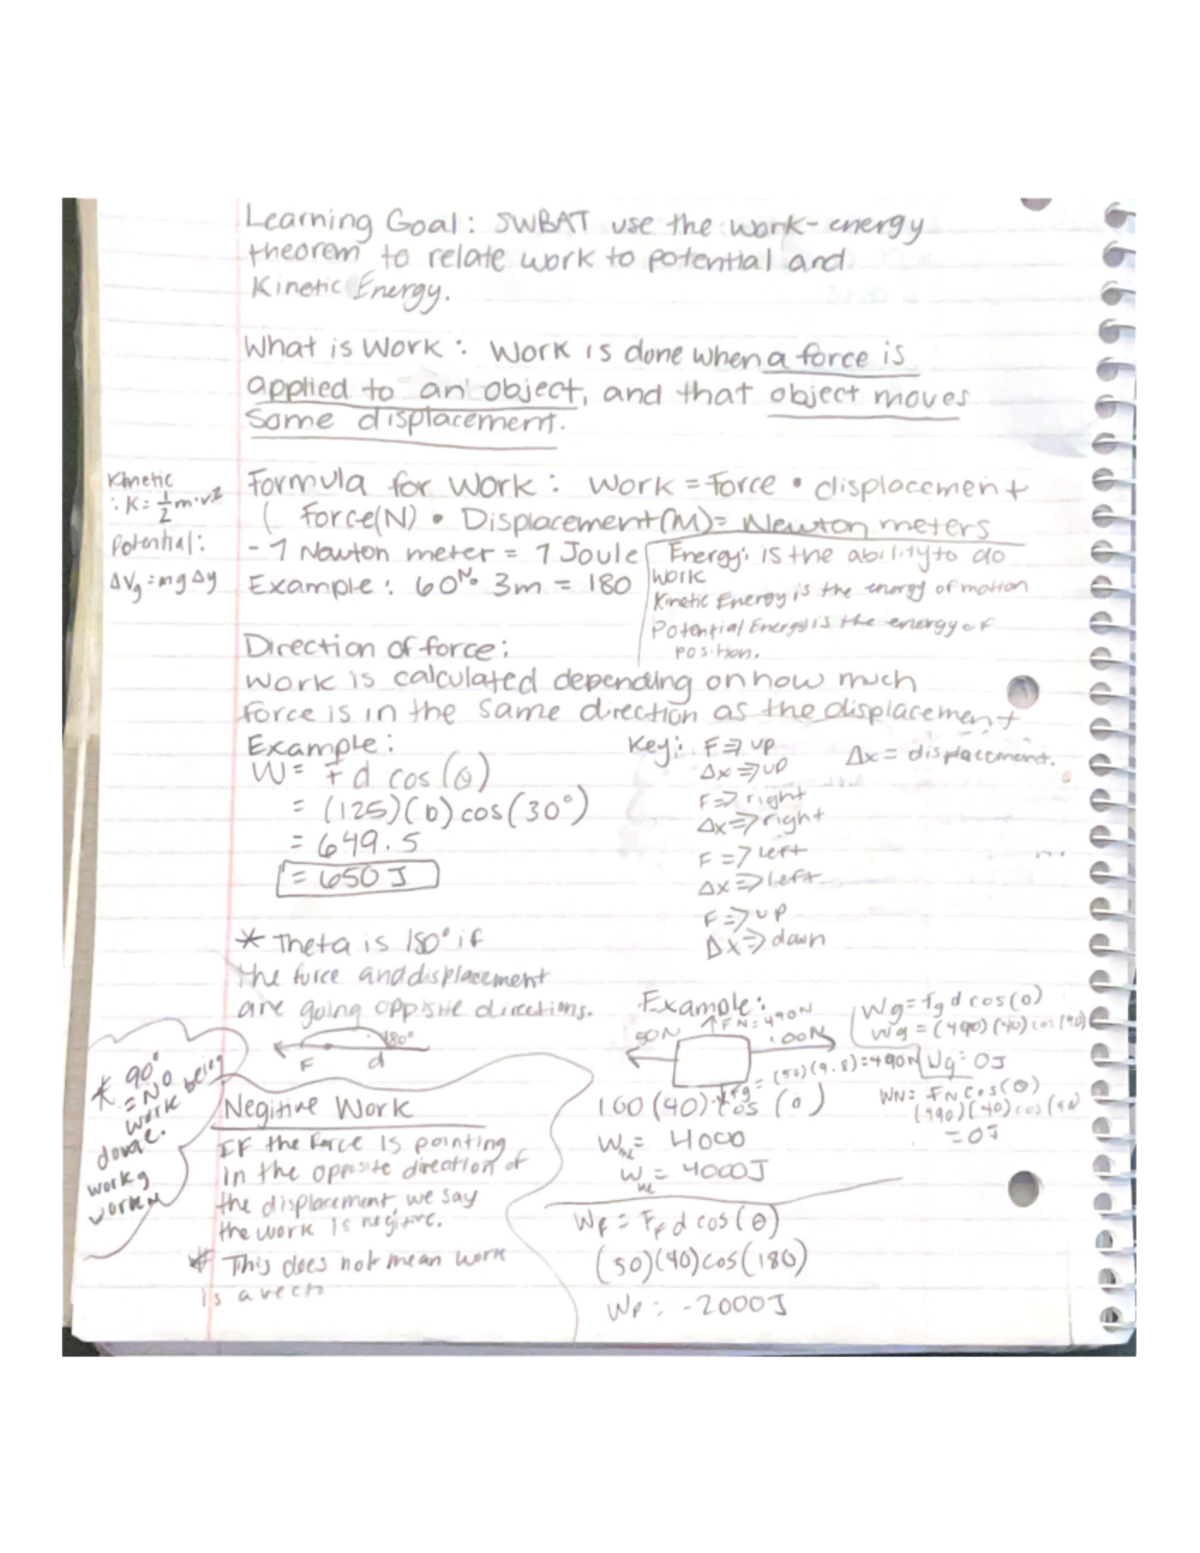 Learning Goal: SWBAT use the work-energy
theorem to relate work to potential and
Kinetic Energy.
What is Work: Work is done when a force is
applied to an object, and that object moves
some displacement.
Kinetic
: K = 1/2 m·v²
Potential:
ΔVg = mgΔy
Formula for Work: Work = Force • displacement
( Force(N) • Displacement(M) = Newton meters
- 1 Newton meter = 1 Joule
Example: 60N • 3m = 180
Energy: is the ability to do
work
Kinetic Energy is the energy of motion
Potential Energy is the energy of
position.
Direction of force:
Work is calculated depending on how much
force is in the same direction as the displacement
Example:
W = F d cos(θ)
= (125)(6)cos(30°)
= 649.5
= 650 J
Key: F ⇒ up
Δx ⇒ up
F ⇒ right
Δx ⇒ right
F ⇒ left
Δx ⇒ left
F ⇒ up
Δx ⇒ down
Δx = displacement.
* Theta is 180° if
the force and displacement
are going opposite directions.
180°
F d
* 90°
= No
work being
done.
work g
work N
Negitive Work
If the force is pointing
in the opposite direction of
the displacement, we say
the work is negitive.
* This does not mean work
is a
Example:
50N FN=490N 100N
Fg = (50)(9.8)=490N
100(40) cos (0)
W = 4000
W = 4000J
Wg = Fg d cos(θ)
Wg = (490)(40)cos(90)
Wg = 0J
WN = FN cos(θ)
(490)(40)cos(90)
= 0J
WF = FF d cos(θ)
(50)(40)cos(180)
WF = -2000J